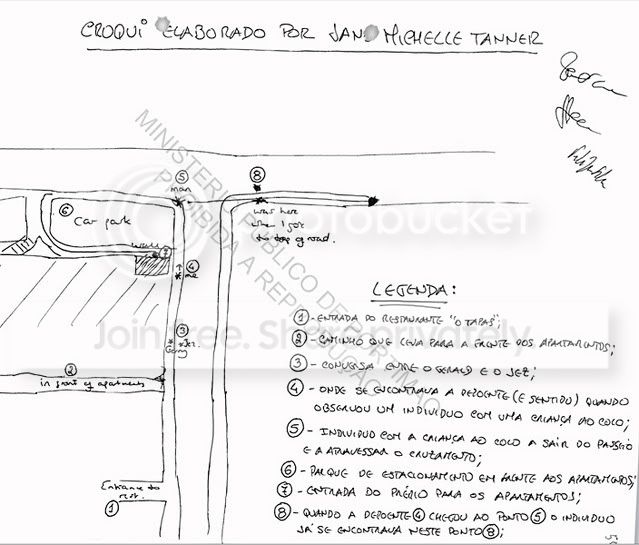 CROQUI ELABORADO POR JANE MICHELLE TANNER
MINISTÉRIO PÚBLICO DE PORTIMÃO
PROIBIDA A REPRODUÇÃO
photobucket
⑤
man
⑧
was here
when I got
to top of road.
⑥ Car park
⑦
④
me
③
Gerry
Jez.
②
in front of apartments
Entrance to
rest.
①
LEGENDA:
① - ENTRADA DO RESTAURANTE "O TAPAS";
② - CAMINHO QUE LEVA PARA A FRENTE DOS APARTAMENTOS;
③ - CONVERSA ENTRE O GERALD E O JEZ;
④ - ONDE SE ENCONTRAVA A DEPOENTE (E SENTIDO) QUANDO
OBSERVOU UM INDIVIDUO COM UMA CRIANÇA AO COLO;
⑤ - INDIVIDUO COM A CRIANÇA AO COLO A SAIR DO PASSEIO
E A ATRAVESSAR O CRUZAMENTO;
⑥ - PARQUE DE ESTACIONAMENTO EM FRENTE AOS APARTAMENTOS;
⑦ - ENTRADA DO PRÉDIO PARA OS APARTAMENTOS;
⑧ - QUANDO A DEPOENTE ④ CHEGOU AO PONTO ⑤ O INDIVIDUO
JÁ SE ENCONTRAVA NESTE PONTO ⑧;